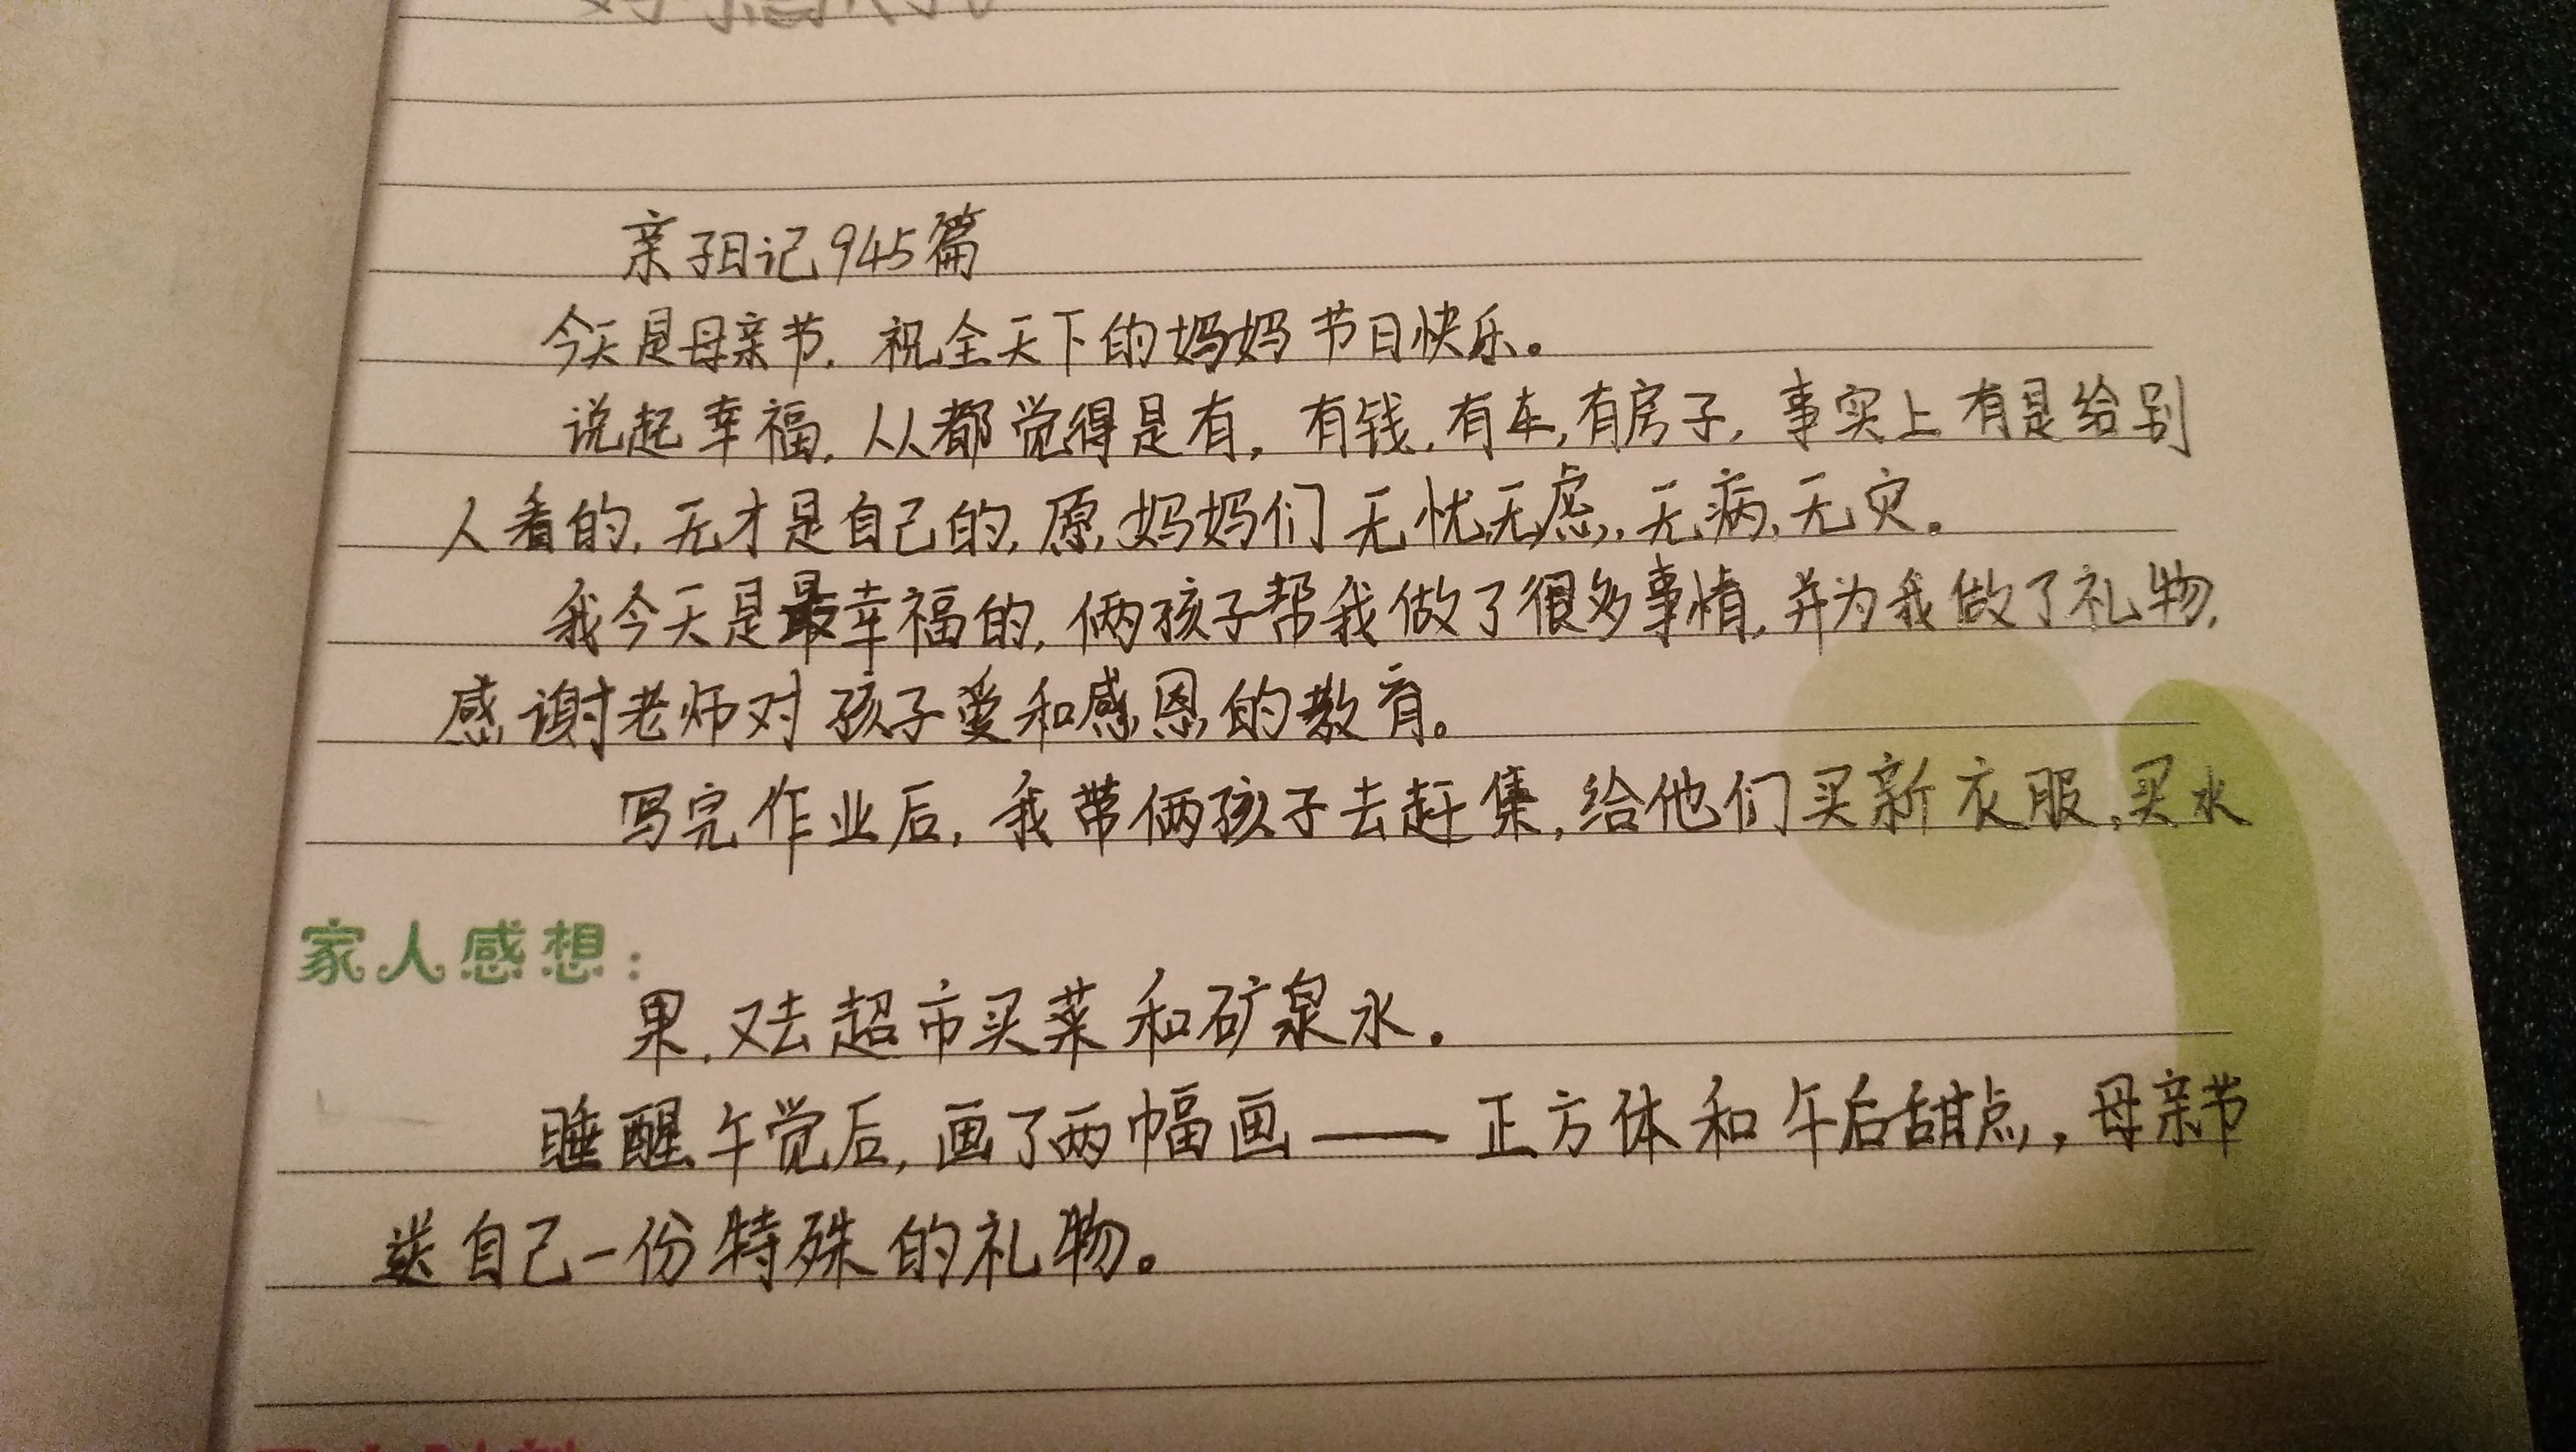 亲子日记945篇
今天是母亲节，祝全天下的妈妈节日快乐。
说起幸福，人人都觉得是有，有钱，有车，有房子，事实上有是给别
人看的，无才是自己的，愿妈妈们无忧无虑，无病，无灾。
我今天是最幸福的，俩孩子帮我做了很多事情，并为我做了礼物，
感谢老师对孩子爱和感恩的教育。
写完作业后，我带俩孩子去赶集，给他们买新衣服，买水
家人感想：
果，又去超市买菜和矿泉水。
睡醒午觉后，画了两幅画——正方体和午后甜点，母亲节
送自己一份特殊的礼物。